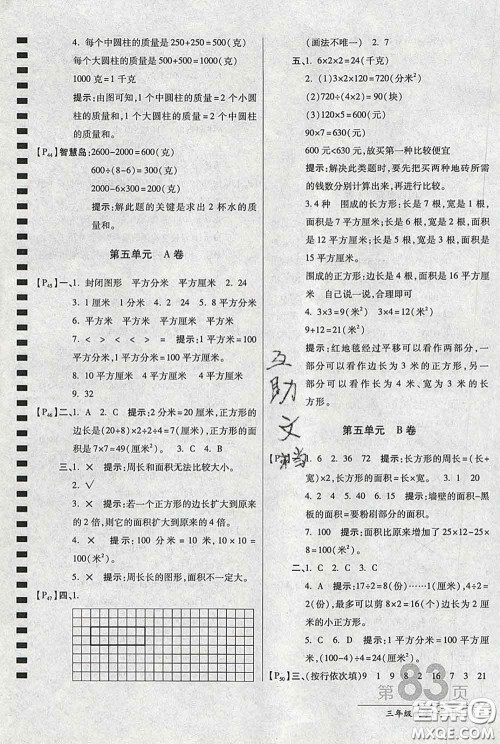 4. 每个中圆柱的质量是250+250=500(克)
每个大圆柱的质量是500+500=1000(克)
1000 克=1 千克
提示:由图可知,1 个中圆柱的质量=2
个小圆柱的质量和,1 个大圆柱的质量=2
个中圆柱的质量和。
【P44】智慧岛:2600-2000=600(克)
600÷(8-6)=300(克)
2000-6×300=200(克)
提示:解此题的关键是求出 2 杯水的质
量和。
第五单元 A 卷
【P45】一、1. 封闭图形 平方分米 平方厘米 2. 24
3. 1 厘米 1 分米 4. 20 5. 8 平方分米
6. 平方米 平方厘米 平方米 平方分米
7. < > < = > 提示:1 平方分米=100
平方厘米,1 平方米=100 平方分米。
8. 平方分米 平方厘米 平方米
9. 32
【P46】二、1. A 2. C 提示:2 分米=20 厘米,正方形的
边长是(20+8)×2÷2÷4=7(厘米),面积
是 7×7=49(厘米²)。 3. C 4. C
三、1. × 提示:周长和面积无法比较大小。
2. √
3. × 提示:若一个正方形的边长扩大到原来
的 2 倍,则它的面积扩大到原来的 4 倍。
4. × 提示:100 分米=10 米,10×10=
100(米²)。
5. × 提示:周长长的图形,面积不一定大。
【P47】四、1.
(画法不唯一) 2. 7
五、1. 6×2×2=24(米²)
2. (1)3×2×120=720(分米²)
(2)720÷(4×2)=90(块)
720÷(3×3)=80(块)
90×7=630(元) 80×8=640(元)
600 元<630 元,故买第一种比较便宜
提示:解决此类题时,要把买两种地砖所需
的钱数分别计算出来,再进行比较。
3. 4 种 围成的长方形:长是 7 根,宽是 1 根,
面积是 7 平方厘米;长是 6 根,宽是 2 根,面
积是 12 平方厘米;长是 5 根,宽是 3 根,面
积是 15 平方厘米。
围成的正方形:边长是 4 根,面积是 16 平方厘
米 自己说一说,合理即可
4. 3×3=9(米²) 3×4=12(米²)
9+12=21(米²)
提示:红地毯经过平移可以看作两部分,一
部分可以看作边长为 3 米的正方形,另一部
分可以看作长为 4 米、宽为 3 米的长方形。
第五单元 B 卷
一、1. 6 2. 36 72 提示:长方形的周长=(长+
宽)×2,长方形的面积=长×宽。 3. 2
4. A 5. 819 16 6. 44 提示:墙壁的面积-黑
板的面积=要粉刷部分的面积。
7. 100 提示:面积比原来增加了 25×12-25×
8=100(米²)。
二、1. C 2. C 3. A
4. A 提示:17÷2=8(份)……1(厘米),9÷2=
4(份)……1(厘米),8×4=32(个)边长为 2 厘
米的小正方形。
5. C 6. D 提示:1 平方分米=100 平方厘米
【P50】三、(按行依次填) 1 9 8 2 16 7 3 21
互助文档
第83页
三年级